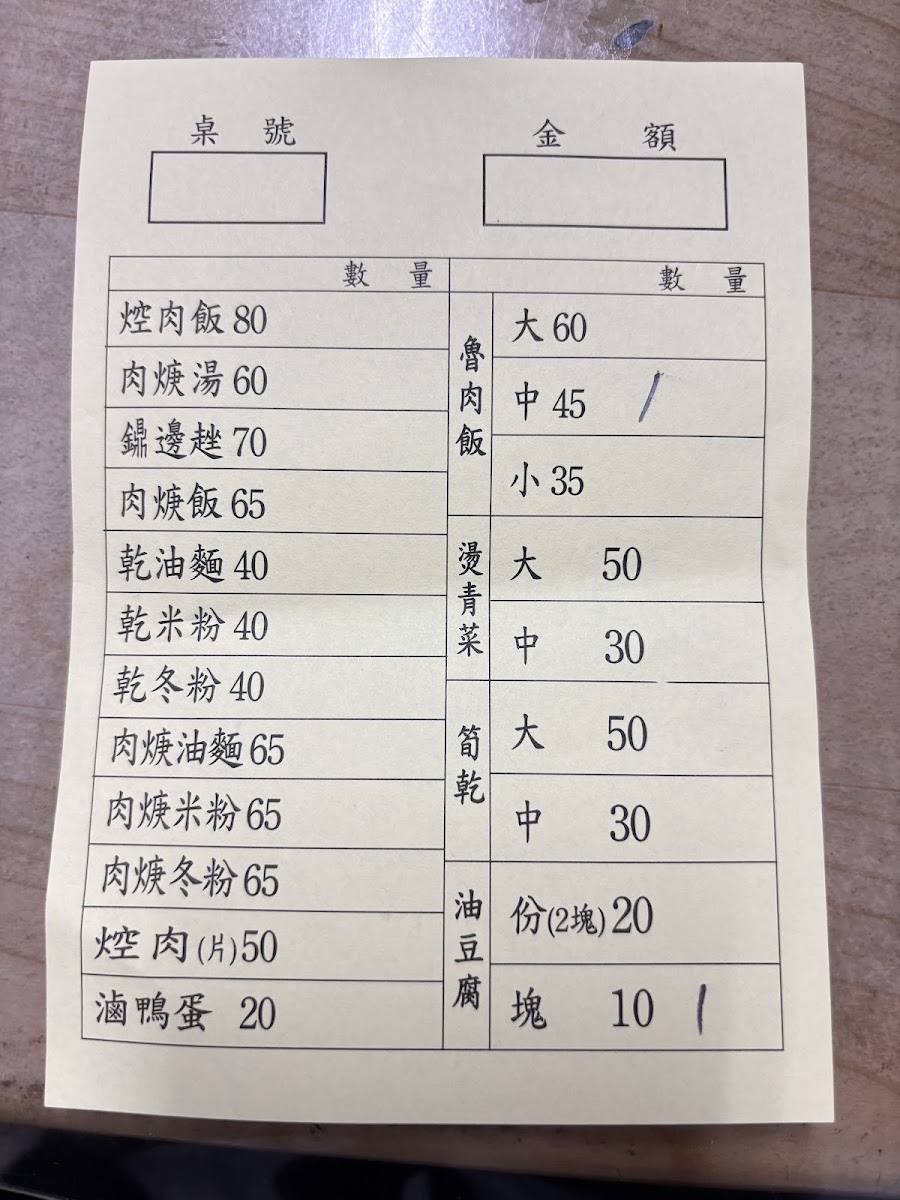 桌號
金額
數量
焢肉飯 80
肉焿湯 60
鼎邊趖 70
肉焿飯 65
乾油麵 40
乾米粉 40
乾冬粉 40
肉焿油麵 65
肉焿米粉 65
肉焿冬粉 65
焢肉(片)50
滷鴨蛋 20
數量
魯肉飯
大 60
中 45 /
小 35
燙青菜
大 50
中 30
筍乾
大 50
中 30
油豆腐
份(2塊)20
塊 10 /